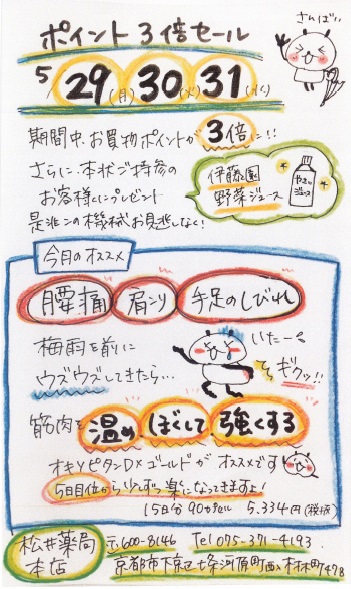 さんばい
ポイント3倍セール
5/29(月)30(火)31(水)
期間中、お買物ポイントが3倍に!!
さらに、本状ご持参の
お客様にプレゼント
是非この機械お見逃しなく!
伊藤園
野菜ジュース
やさい
ジュース
今月のオススメ
腰痛 肩こり 手足のしびれ
梅雨を前に
ウズウズしてきたら…
いたーい
ギクッ!!
筋肉を温めほぐして強くする
オキソピタンDXゴールドがオススメです
5日目位から少しずつ楽になってきますよ!
15日分 90カプセル 5.334円(税抜)
松井薬局
本店
〒600-8146 Tel 075-371-4193
京都市下京区七条河原町西入材木町478